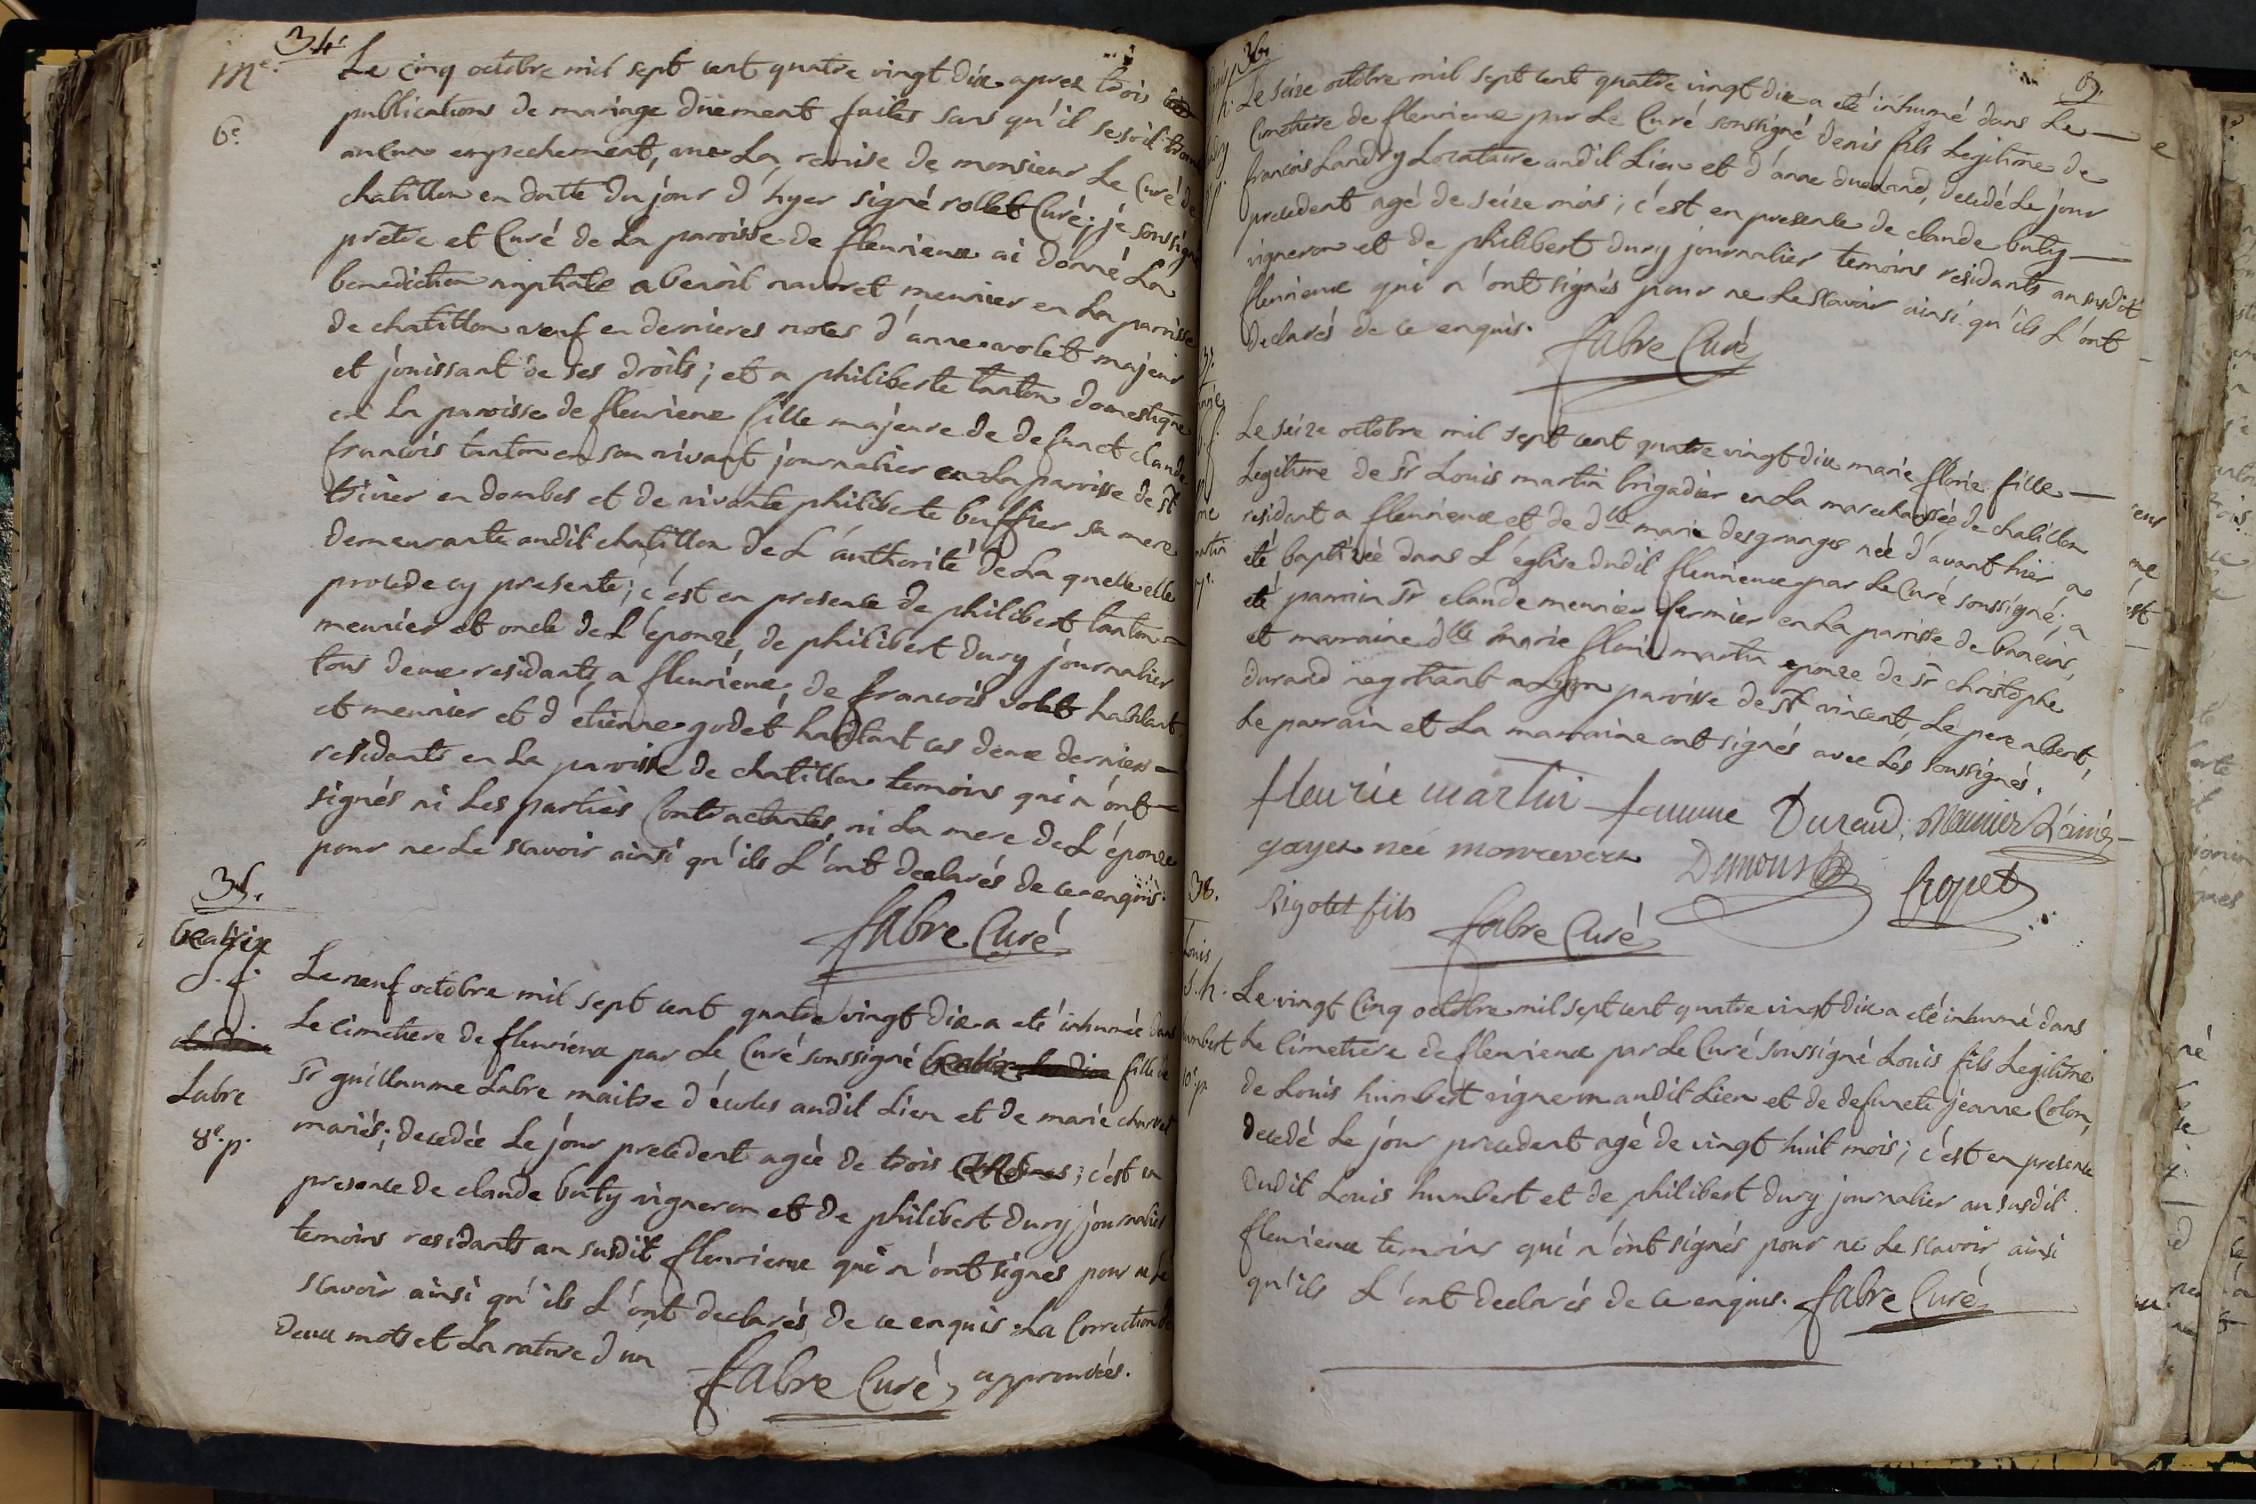 34.
M.e
6.e
Le cinq octobre mil sept cent quatre vingt dix apres trois
publications de mariage düement faites sans qu'il se soit trouvé
aucun empechement, vue La remise de monsieur Le Curé de
chatillon en datte du jour d'hyer signé rollet Curé; je soussigné
prêtre et Curé de La paroisse de fleurieux ai donné La
benediction nuptiale a benoit navoret meunier en La paroisse
de chatillon veuf en dernieres noces d'anne volet majeur
et joüissant de ses droits; et a philiberte tanton domestique
en La paroisse de fleurieux fille majeure de defunct claude
francois tanton en son vivant journalier en La paroisse de st
trivier en dombes et de vivante philiberte buffier sa mere
demeurante audit chatillon de L'authorité de La quelle elle
procede cy presente; c'est en presence de philibert tanton
meunier et oncle de L'épouze, de philibert dury journalier
tous deux residants a fleurieux, de francois volet habitant
et meunier et d'étienne godet habitant ces deux derniers
residants en La paroisse de chatillon temoins qui n'ont
signés ni Les parties Contractantes, ni La mere de L'épouze
pour ne Le scavoir ainsi qu'ils L'ont declarés de ce enquis.
fabre Curé
35.
Beatrix
S. f.
Labre
8.e p.
Le neuf octobre mil sept cent quatre vingt dix a eté inhumée dans
Le cimetiere de fleurieux par Le Curé soussigné Beatrix fille de
Sr guillaume Labre maitre d'écoles audit Lieu et de marie charvet
mariés; decedée Le jour precedent agée de trois ; c'est en
presence de claude buty vigneron et de philibert dury journalier
temoins residants au susdit fleurieux qui n'ont signés pour ne Le
scavoir ainsi qu'ils L'ont declarés de ce enquis. La Correction de
deux mots et La rature d'un approuvées.
fabre Curé
36.
69.
Le seize octobre mil sept cent quatre vingt dix a eté inhumé dans Le
Cimetiere de fleurieux par Le Curé soussigné denis fils Legitime de
francois Landry Locataire audit Lieu et d'anne durand, decedé Le jour
precedent agé de seize mois; c'est en presence de claude buty
vigneron et de philibert dury journalier temoins residants au susdit
fleurieux qui n'ont signés pour ne Le scavoir ainsi qu'ils L'ont
declarés de ce enquis.
fabre Curé
37.
Le seize octobre mil sept cent quatre vingt dix marie florie fille
Legitime de Sr Louis martin brigadier en La marechaussée de chatillon
residant a fleurieux et de dlle marie desgranges née d'avant hier a
eté baptisée dans L'église dudit fleurieux par Le Curé soussigné; a
eté parrain Sr claude meunier fermier en La paroisse de baneins,
et marraine dlle marie florie martin epouze de Sr christophe
durand negotiant a Lyon paroisse de St vincent, Le pere absent,
Le parrain et La marraine ont signés avec Les soussignés.
fleurie martin femme Durand, Meunier L'ainé
gayet née moncevera Demous Cropet
Rigolet fils fabre Curé
38.
Louis
S. h.
humbert
10.e p.
Le vingt Cinq octobre mil sept cent quatre vingt dix a eté inhumé dans
Le Cimetiere de fleurieux par Le Curé soussigné Louis fils Legitime
de Louis humbert vigneron audit Lieu et de defuncte jeanne Colon,
decedé Le jour precedent agé de vingt huit mois; c'est en presence
dudit Louis humbert et de philibert dury journalier au susdit
fleurieux temoins qui n'ont signés pour ne Le scavoir ainsi
qu'ils L'ont declarés de ce enquis. fabre Curé